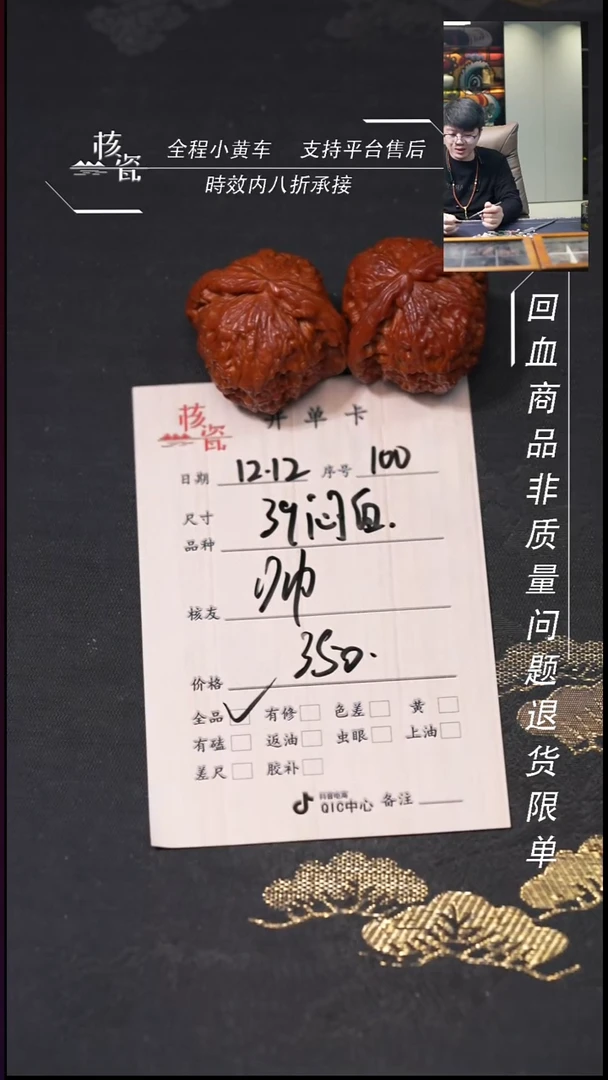 核瓷
全程小黄车 支持平台售后
時效内八折承接
回血商品非质量问题退货限单
核瓷
开单卡
日期 12.12 序号 100
尺寸 39闷血.
品种
核友 帅
价格 350.
全品 有修 色差 黄
有磕 返油 虫眼 上油
差尺 胶补
抖音电商
QIC中心 备注